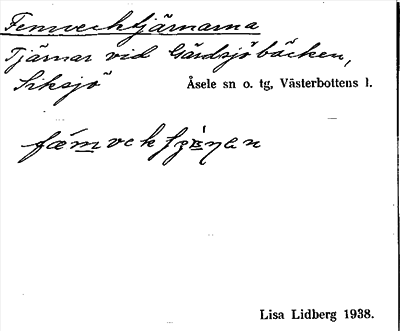 Femvecktjärnarna
Tjärnar vid Gårdsjöbäcken,
Siksjö Åsele sn o. tg, Västerbottens l.
Lisa Lidberg 1938.